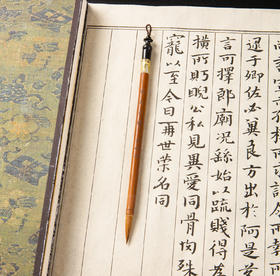 逮于卿佐必冀良方出於阿是芻
言可擇郎廟況繇始以疏賤得為
橫所眄睨公私見異愛同骨肉殊
寵以至今日再世榮名同